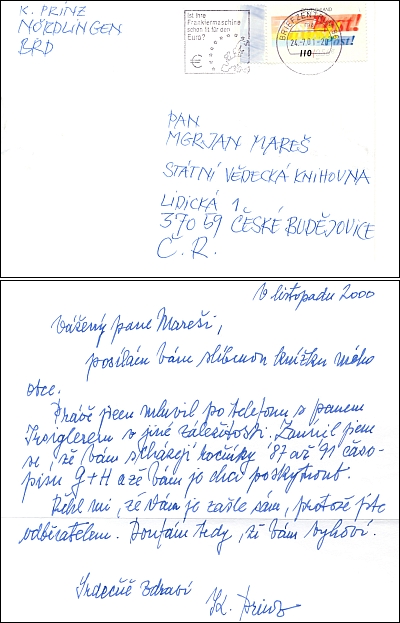 K. PRINZ
NÖRDLINGEN
BRD
Ist Ihre
Frankiermaschine
schon fit für den
Euro?
€
BRIEFZENTRUM
Post!
Post!
PAN
MGR JAN MAREŠ
STÁTNÍ VĚDECKÁ KNIHOVNA
LIDICKÁ 1
370 59 ČESKÉ BUDĚJOVICE
Č. R.
V listopadu 2000
Vážený pane Mareši,
posílám Vám slíbenou knížku mého
otce.
Právě jsem mluvil po telefonu s panem
Insiglerem v jiné záležitosti. Zmínil jsem
se, že Vám scházejí ročníky '87 až '91 časo-
pisu G+H a že Vám je chci poskytnout.
Řekl mi, že Vám je zašle sám, protože jste
odběratelem. Doufám tedy, že Vám vyhoví.
Srdečně zdraví
K. Prinz